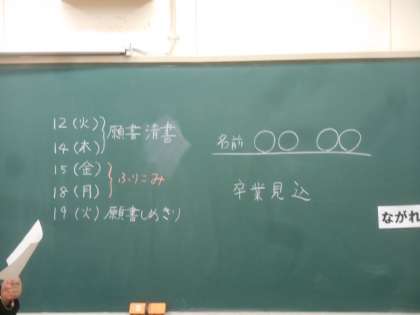 12(火)
14(木)
願書清書
15(金)
18(月)
ふりこみ
19(火) 願書しめきり
名前 ○○ ○○
卒業見込
ながれ